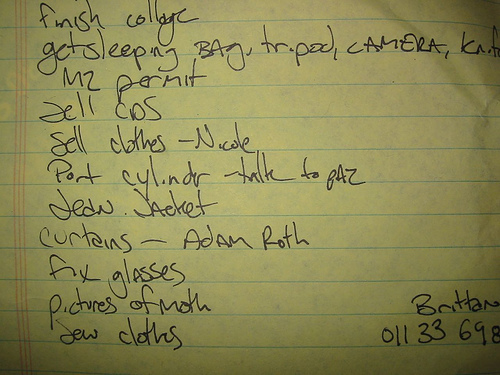 finish collage
get sleeping BAg, tripod, CAMERA, knife
M2 permit
Sell CDS
Sell clothes - Nicole
Port cylindr - talk to
Jean Jacket
curtains - Adam Roth
fix glasses
pictures of moth
Sew clothes
Brittan
011 33 698